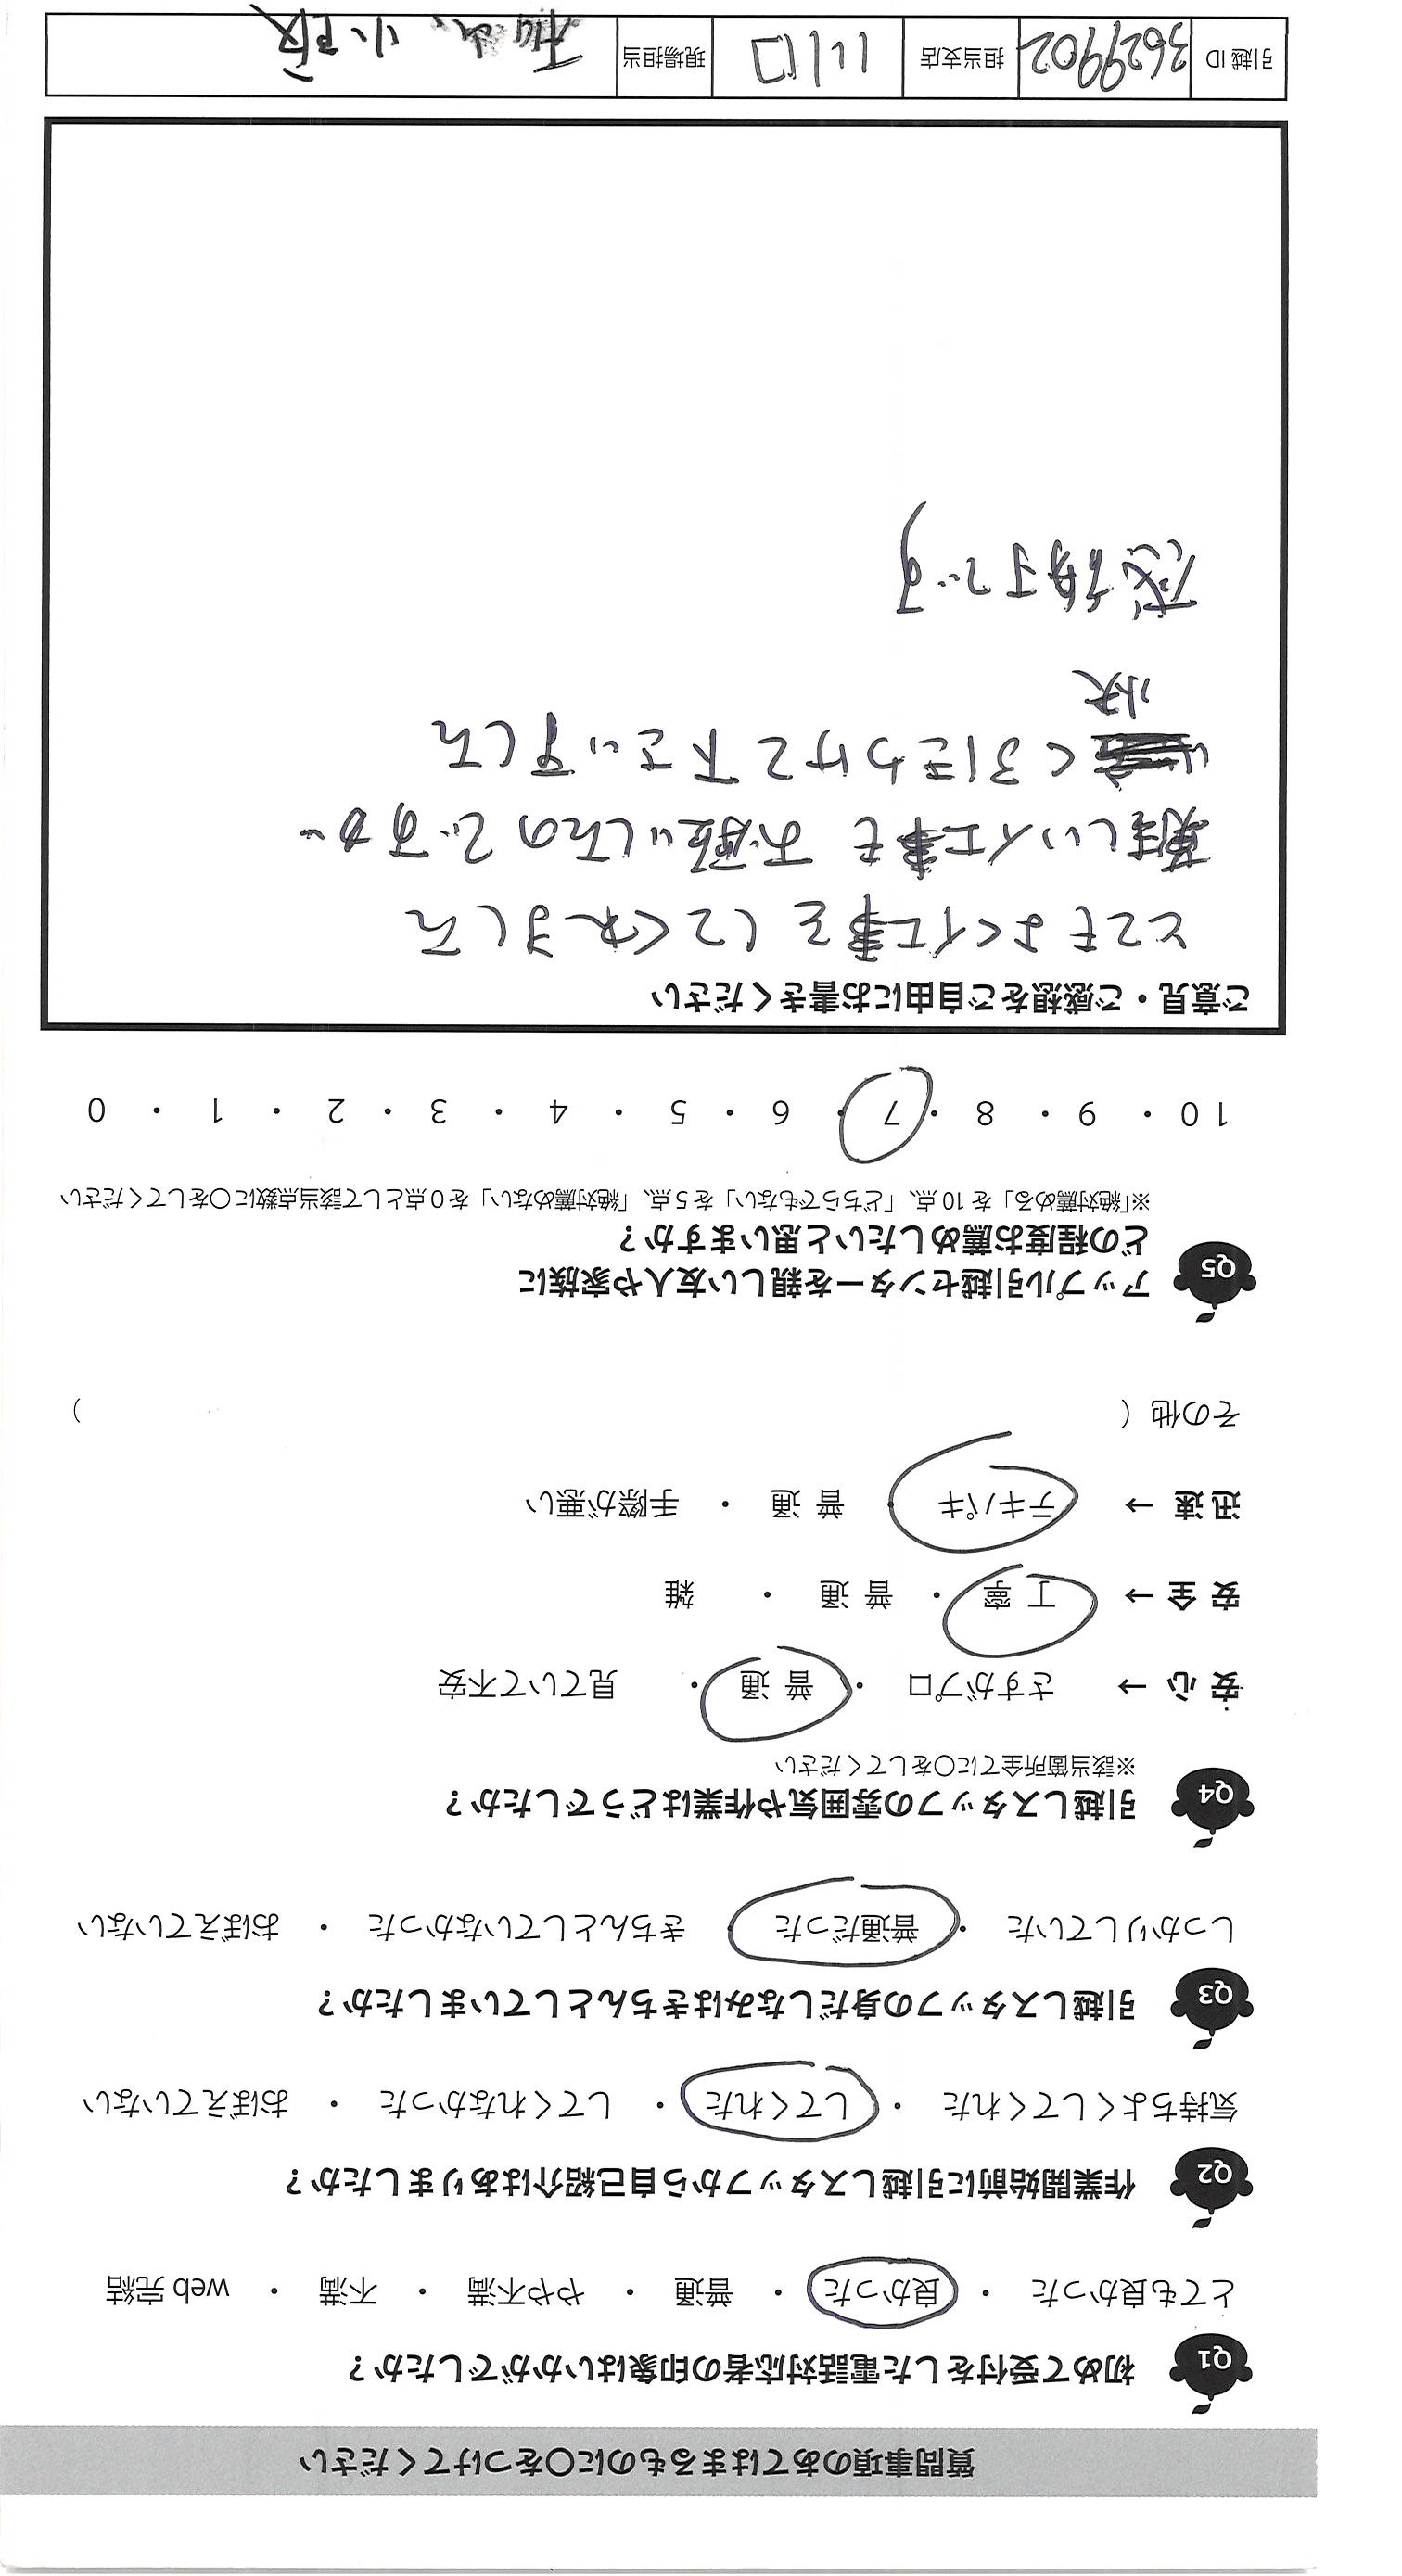 質問事項のあてはまるものに〇をつけてください
Q1 初めて受付をした電話対応者の印象はいかがでしたか？
とても良かった ・ 良かった ・ 普通 ・ やや不満 ・ 不満 ・ web 完結
Q2 作業開始前に引越しスタッフから自己紹介はありましたか？
気持ちよくしてくれた ・ してくれた ・ してくれなかった ・ おぼえていない
Q3 引越しスタッフの身だしなみはきちんとしていましたか？
しっかりしていた ・ 普通だった ・ きちんとしていなかった ・ おぼえていない
Q4 引越しスタッフの雰囲気や作業はどうでしたか？
※該当箇所全てに〇をしてください
安 心 → さすがプロ ・ 普 通 ・ 見ていて不安
安 全 → 丁 寧 ・ 普 通 ・ 雑
迅 速 → テキパキ ・ 普 通 ・ 手際が悪い
その他（ ）
Q5 アップル引越センターを親しい友人や家族に
どの程度お薦めしたいと思いますか？
※「絶対薦める」を 10 点、「どちらでもない」を 5 点、「絶対薦めない」を 0 点として該当点数に〇をしてください
10 ・ 9 ・ 8 ・ 7 ・ 6 ・ 5 ・ 4 ・ 3 ・ 2 ・ 1 ・ 0
ご意見・ご感想をご自由にお書きください
とてもよく仕事をしてくれました
難しい仕事も お願いしたのですが
快くうけて下さいました
感謝です
引越 ID 3629902 担当支店 川口 現場担当 小阪